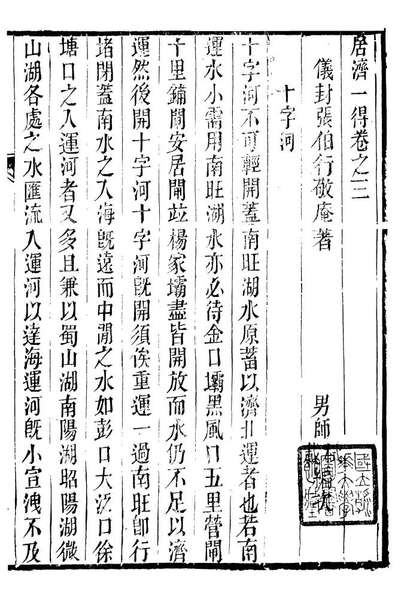 居濟一得卷之三
儀封張伯行敬庵著 男師
十字河
十字河不可輕開蓋南旺湖水原蓄以濟北運者也若南
運水小需用南旺湖水亦必待金口壩黑風口五里營閘
十里鋪閘安居閘竝楊家壩盡皆開放而水仍不足以濟
運然後開十字河十字河旣開須俟重運一過南旺卽行
堵閉蓋南水之入海旣遠而中閒之水如彭口大泛口徐
塘口之入運河者又多且兼以蜀山湖南陽湖昭陽湖微
山湖各處之水匯流入運河以達海運河旣小宣洩不及